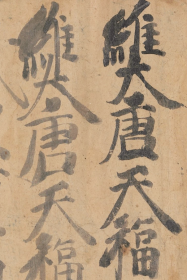 維大唐天福
維大唐天福